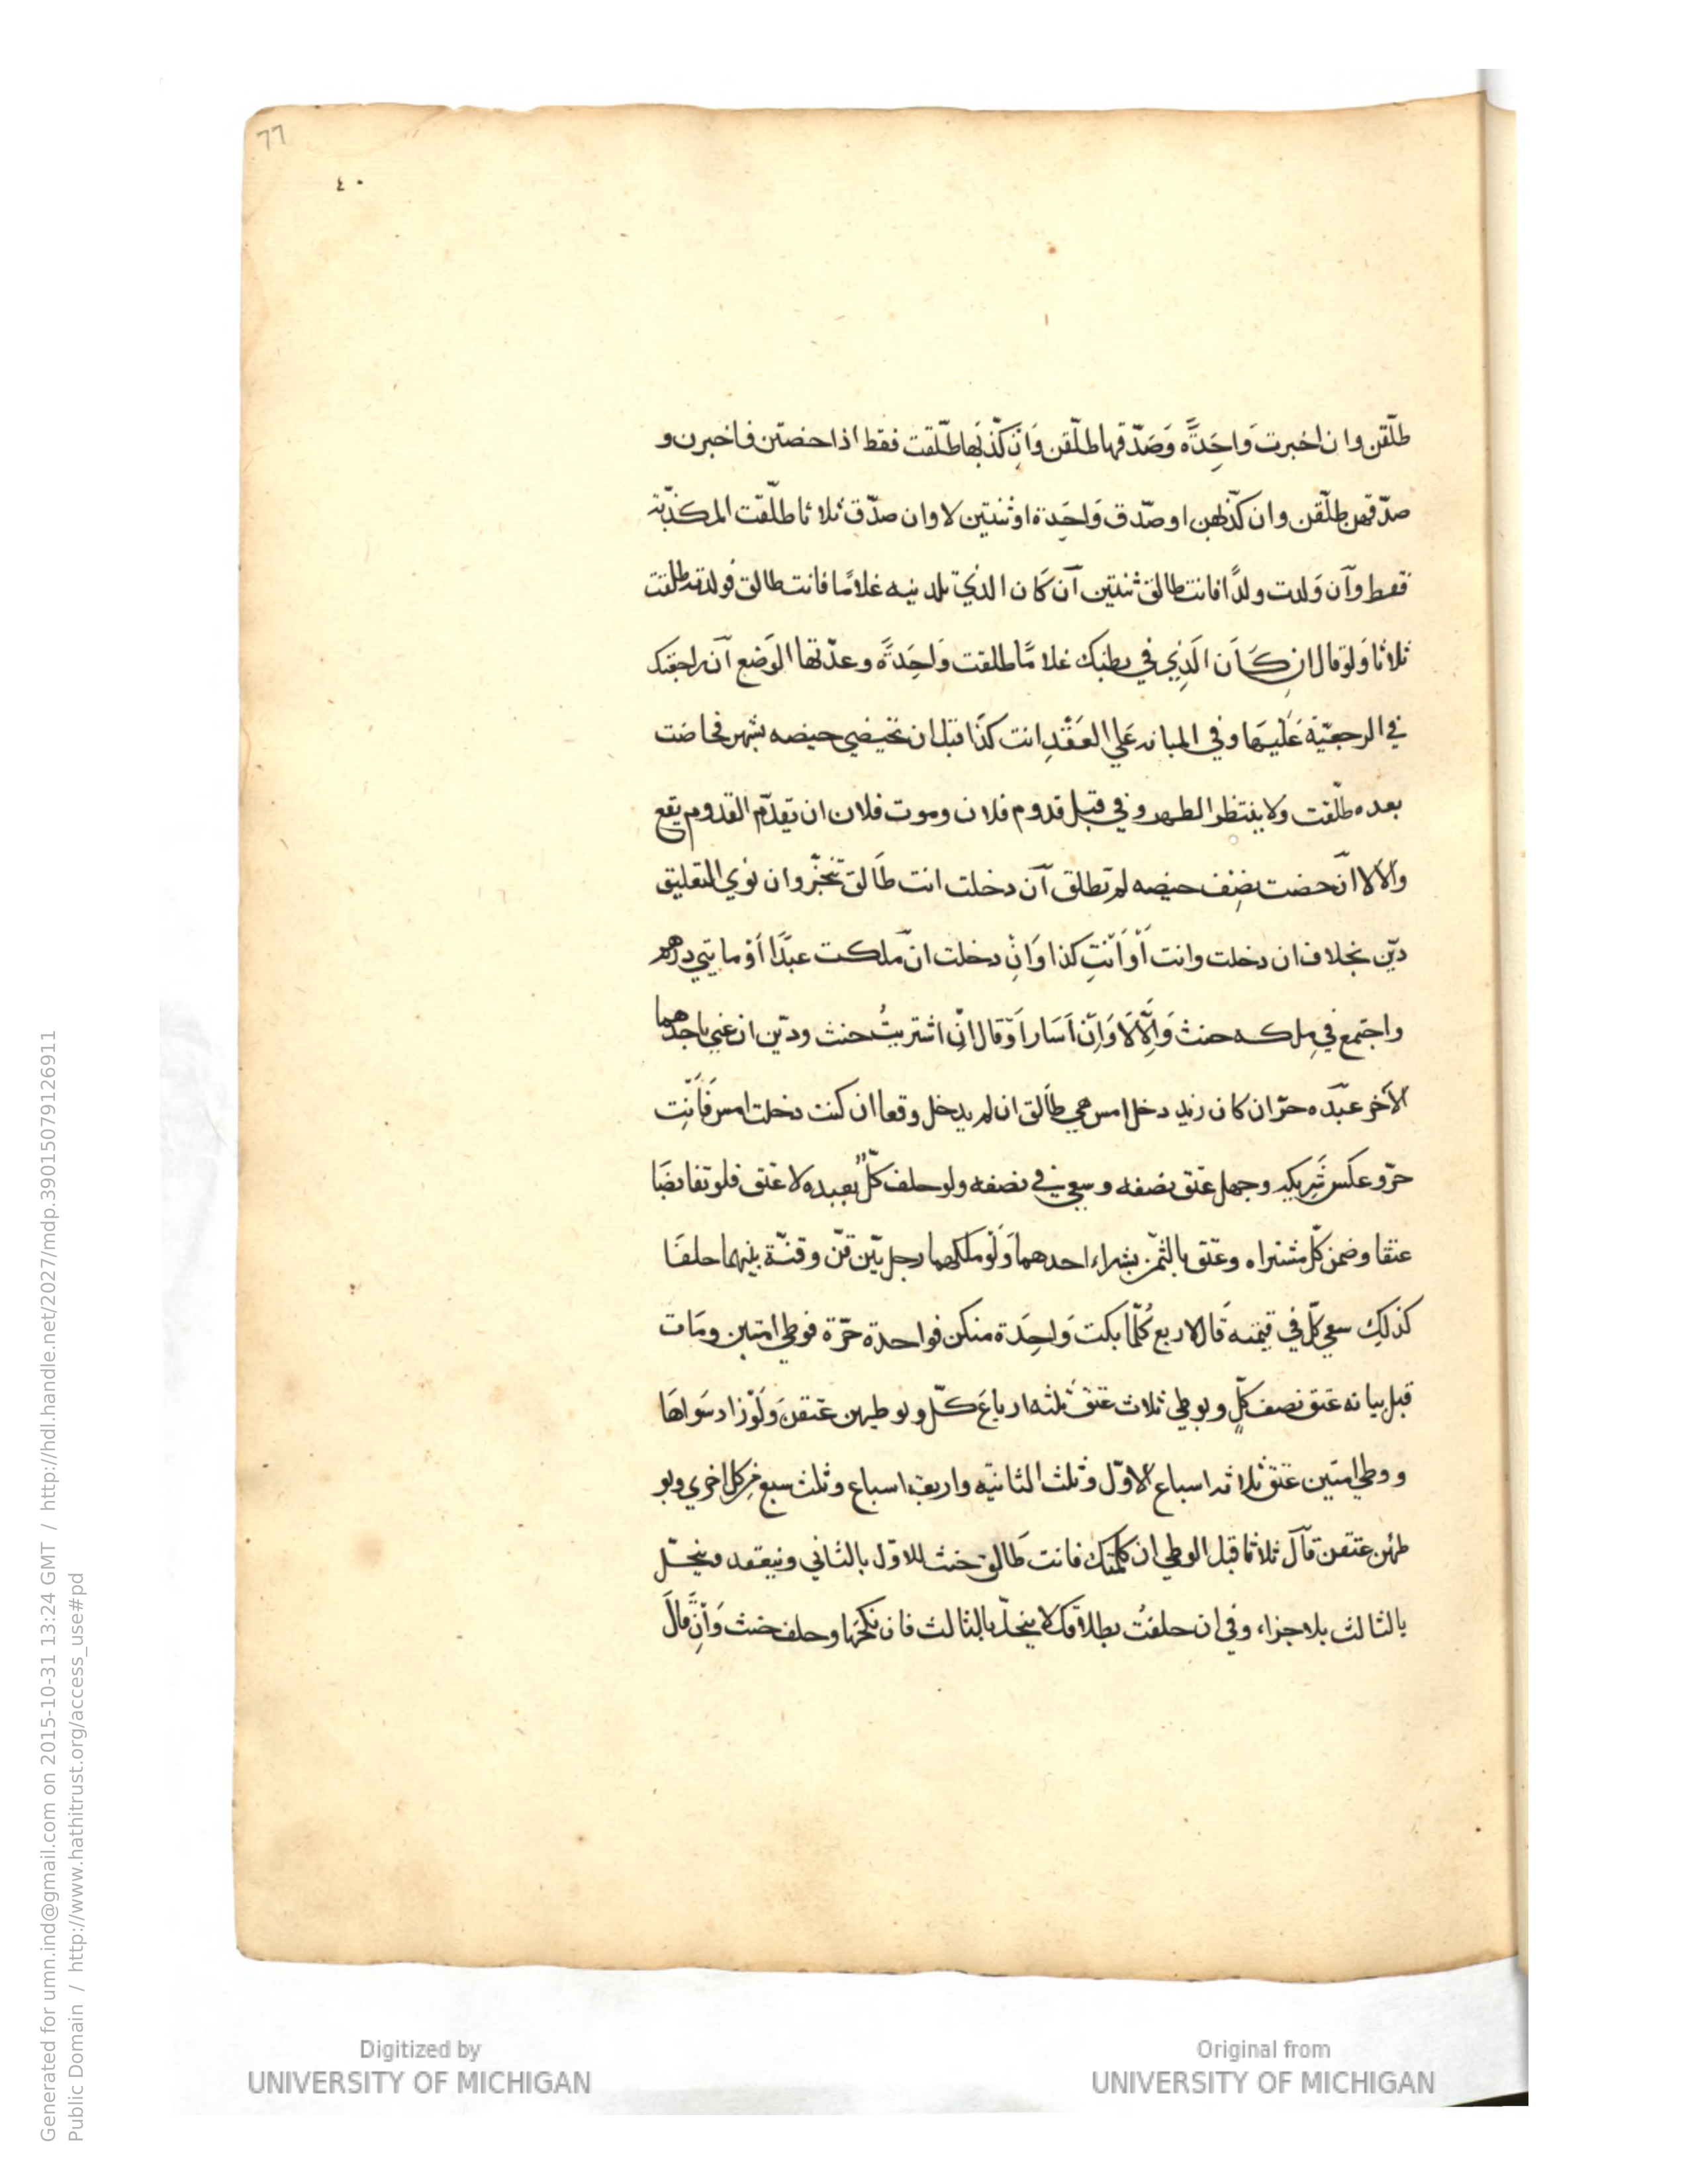 77
٤٠
طلّقن وان اخبرت وَاحِدَةً وَصَدّقها طلّقن وَاِن كذّبَها طلّقت فقط اذا حضتن فاخبرن و
صدّقهن طلّقن وان كذّبهن او صدّق وَاحِدة او ثنتين لا وان صدّق ثلاثا طلّقت المكذّبة
فقط وان وَلدت ولدًا فانت طالق ثنتين ان كَان الذي تلدينه غلامًا فانت طالق فولدته طلقت
ثلاثا وَلو قال ان كَانَ الَذِي في بطنك غلامًا طلقت وَاحِدَةً وعدّتها الوَضع ان راجعتك
في الرجعيّة عَليهَا وفي المبانه عَلي العَقْدِ انت كذَا قبل ان تحيضي حيضه بشهر فحاضت
بعده طلّقت ولا ينتظر الطهر وفي قبل قدوم فلان وموت فلان ان تقدّم القدوم يقع
والا لا ان حضت نصف حيضه لم تطلق ان دخلت انت طَالق تنجّز وان نوي التعليق
ديّن بخلاف ان دخلت وانت أَوْ أَنْتِ كذا وَاِنْ دخلت ان ملكت عبدًا أوْ مايتي درهم
واجتمع في مِلكه حنث وَاِلّا لَا وَاِنْ اَسَار اَوْ قال اِنْ اشتريتُ حنث وديّن ان عني باحدهما
الآخر عبّده حرّ ان كان زيد دخل امس هي طَالق ان لم يدخل وقعا ان كنت دخلت امس فَأَنْتِ
حرّ وعكس شَرِيكه وجهل عتق نصفه وسعي في نصفه ولو حلف كلّ بعبده لا عتق فلو تقايضَا
عتقا وضمن كلّ مشتراه وعتق بالثمن بشراء احدهما وَلَوْ ملكهما رجل بيّن قنّ وقنّة بينهما حلفَا
كذلِك سعي كلّ في قيمته قَال لاربع كُلّما بكت وَاحِدَة منكن فواحدة حرّة فوطي امتين ومَات
قبل بيانه عتق نصف كلٍّ وبوطي ثلاث عتق ثلثه ارباعَ كلّ وبوطيهن عتقن وَلَوْ زاد سَواهَا
ووطي امتين عتق ثلاثه اسباع الاوّل وثلث الثانيّه واربعه اسباع وثلث سبع من كل اخري وبو
طئهن عتقن قال ثلاثا قبل الوطي ان كلمتك فانت طَالق حنث للاوّل بالثاني وينعقد وينحلّ
بالثالث بلا جزاء وفي ان حلفتُ بطلاقك لا ينحلّ بالثالث فان نكحَها وحلف حنث وَاِنْ قالَ
Generated for umn.ind@gmail.com on 2015-10-31 13:24 GMT / http://hdl.handle.net/2027/mdp.39015079126911
Public Domain / http://www.hathitrust.org/access_use#pd
Digitized by
UNIVERSITY OF MICHIGAN
Original from
UNIVERSITY OF MICHIGAN